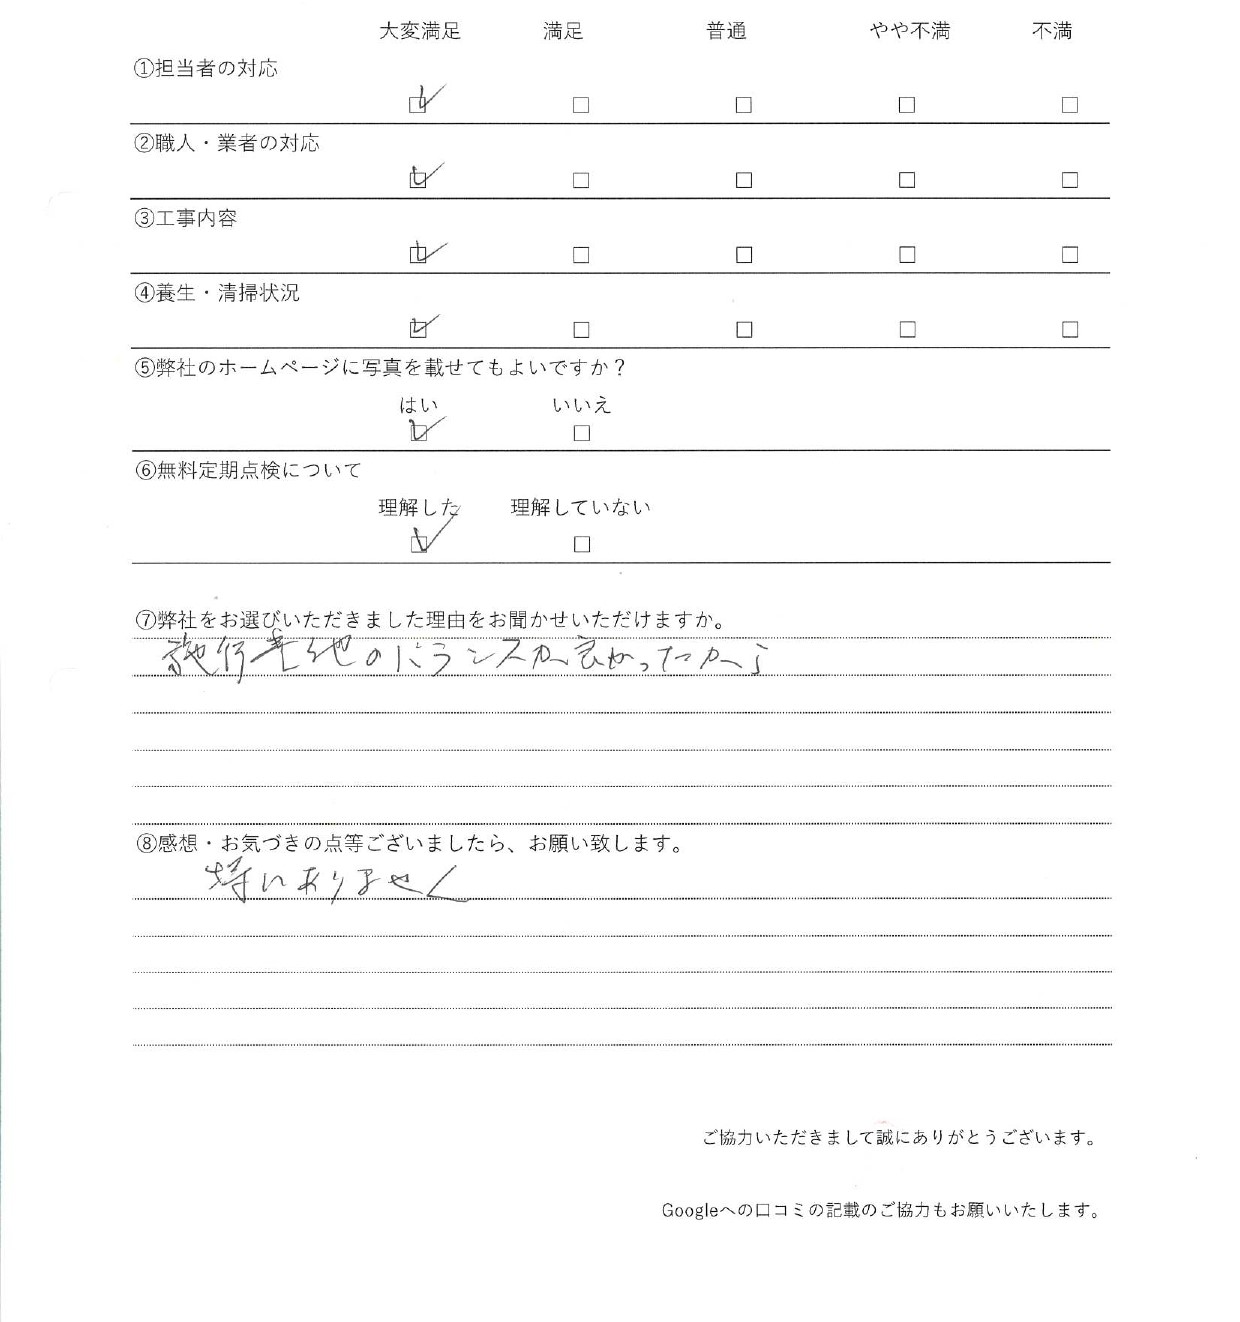 大変満足 満足 普通 やや不満 不満
①担当者の対応
②職人・業者の対応
③工事内容
④養生・清掃状況
⑤弊社のホームページに写真を載せてもよいですか？
はい いいえ
⑥無料定期点検について
理解した 理解していない
⑦弊社をお選びいただきました理由をお聞かせいただけますか。
施行 のバランスが良かったから
⑧感想・お気づきの点等ございましたら、お願い致します。
特にありません
ご協力いただきまして誠にありがとうございます。
Googleへの口コミの記載のご協力もお願いいたします。